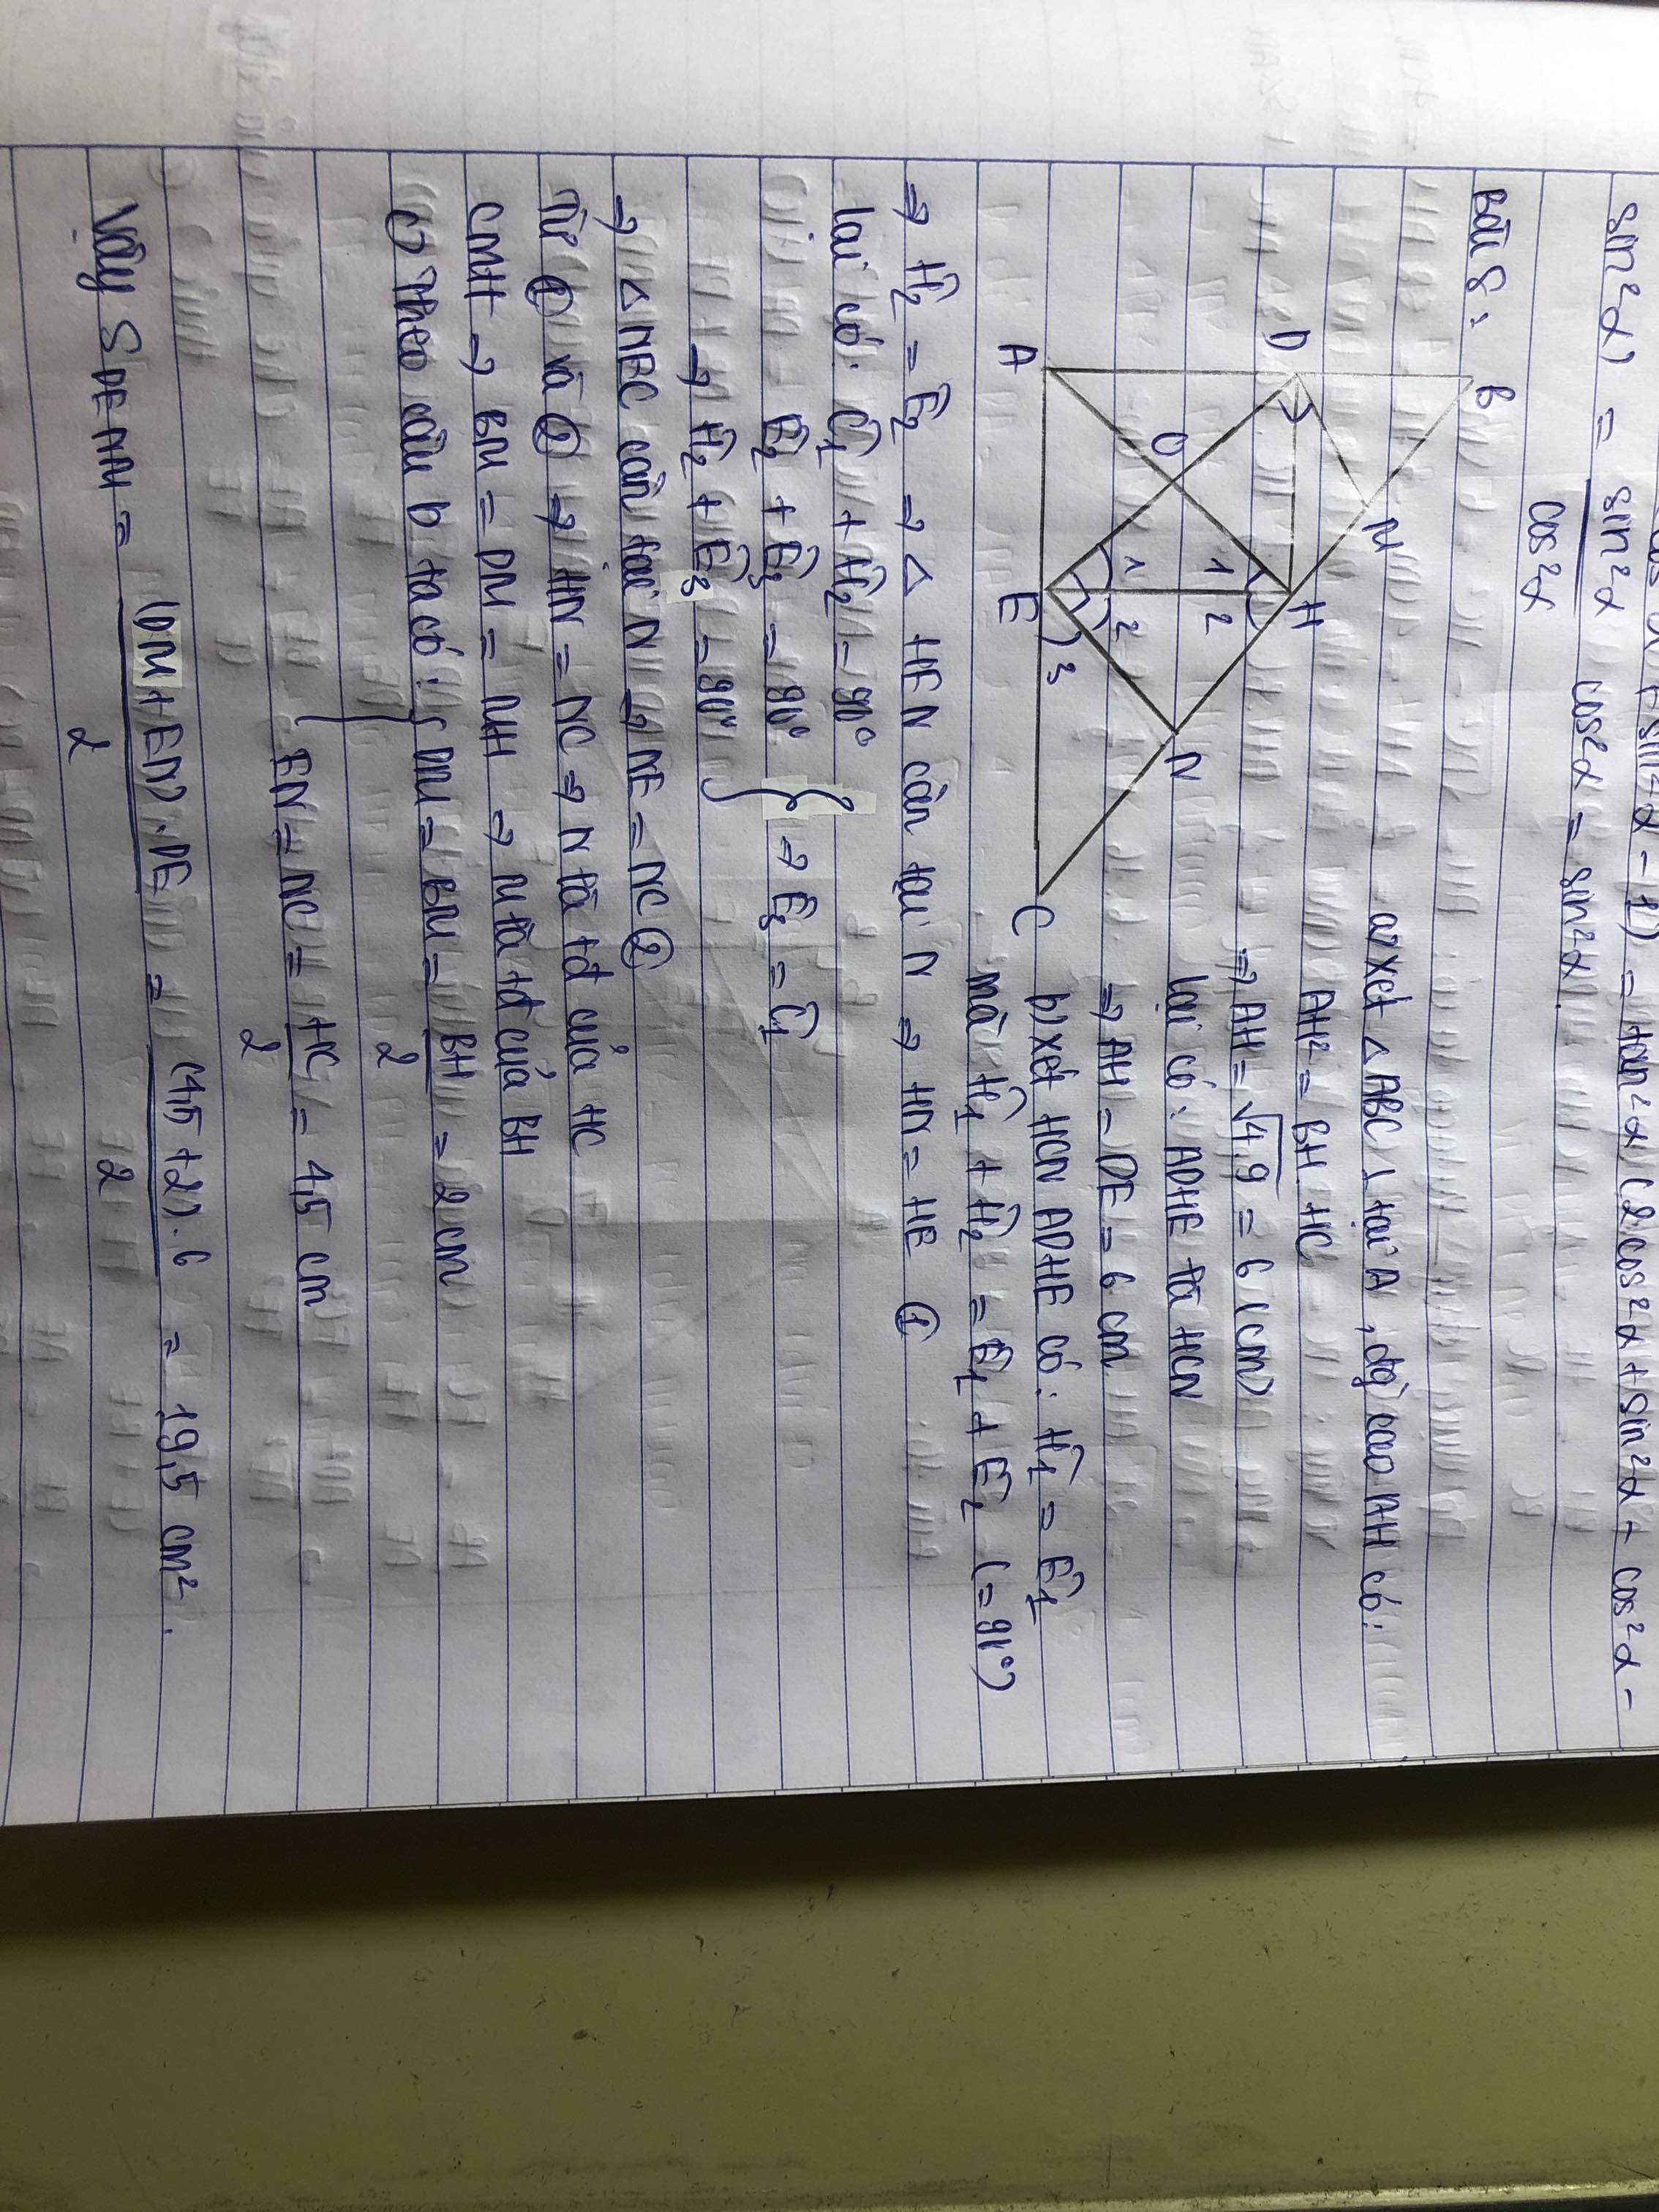 sin²α) = sin²α / cos²α · cos²α = sin²α.
Bài 8:
B
D
M
H
O
1
2
1
2
3
A
E
N
C
a) xét △ ABC ⊥ tại A, đg cao AH có:
AH² = BH. HC
⇒ AH = √4.9 = 6 (cm)
lại có: ADHE là HCN
⇒ AH = DE = 6 cm
b) xét HCN ADHE có: Ĥ₁ = Ê₁
mà Ĥ₁ + Ĥ₂ = Ê₁ + Ê₂ (= 90°)
⇒ Ĥ₂ = Ê₂ ⇒ △ HEN cân tại N ⇒ HN = HE ①
lại có: Ĉ₁ + Ĥ₂ = 90°
Ê₂ + Ê₃ = 90° } ⇒ Ê₃ = Ĉ₁
⇒ Ĥ₂ + Ê₃ = 90°
⇒ △ NEC cân tại N ⇒ NE = NC ②
Từ ① và ② ⇒ HN = NC ⇒ N là tđ của HC
CMTT ⇒ BM = DM = MH ⇒ M là tđ của BH
c) Theo câu b ta có: { DM = BM = BH / 2 = 2 cm
EN = NC = HC / 2 = 4,5 cm
Vậy S DENM = (DM + EN). DE / 2 = (4,5 + 2). 6 / 2 = 19,5 cm².